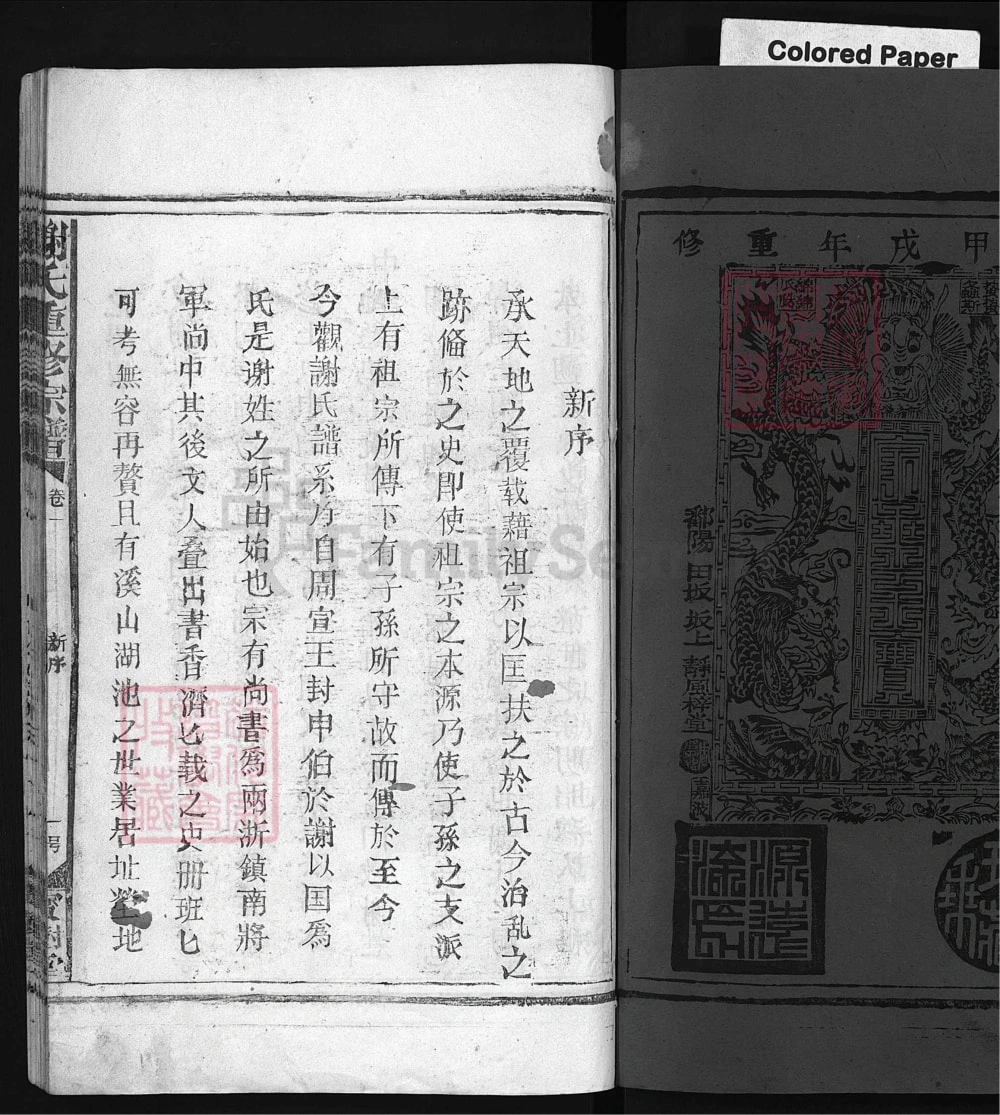 Colored Paper
甲戌年重修
鄱陽田坂坂上靜風梓堂
新序
承天地之覆载藉祖宗以匡扶之於古今治乱之
跡偹於之史即使祖宗之本源乃使子孫之支派
上有祖宗所傳下有子孫所守故而傳於至今
今觀謝氏譜系乃自周宣王封申伯於謝以国為
氏是谢姓之所由始也宗有尚書為兩浙鎮南將
軍尚中其後文人叠出書香濟匕载之史册班匕
可考無容再贅且有溪山湖池之世業居址瑩地
謝氏重修宗譜
卷一
新序
一号
寳樹堂
FamilySe